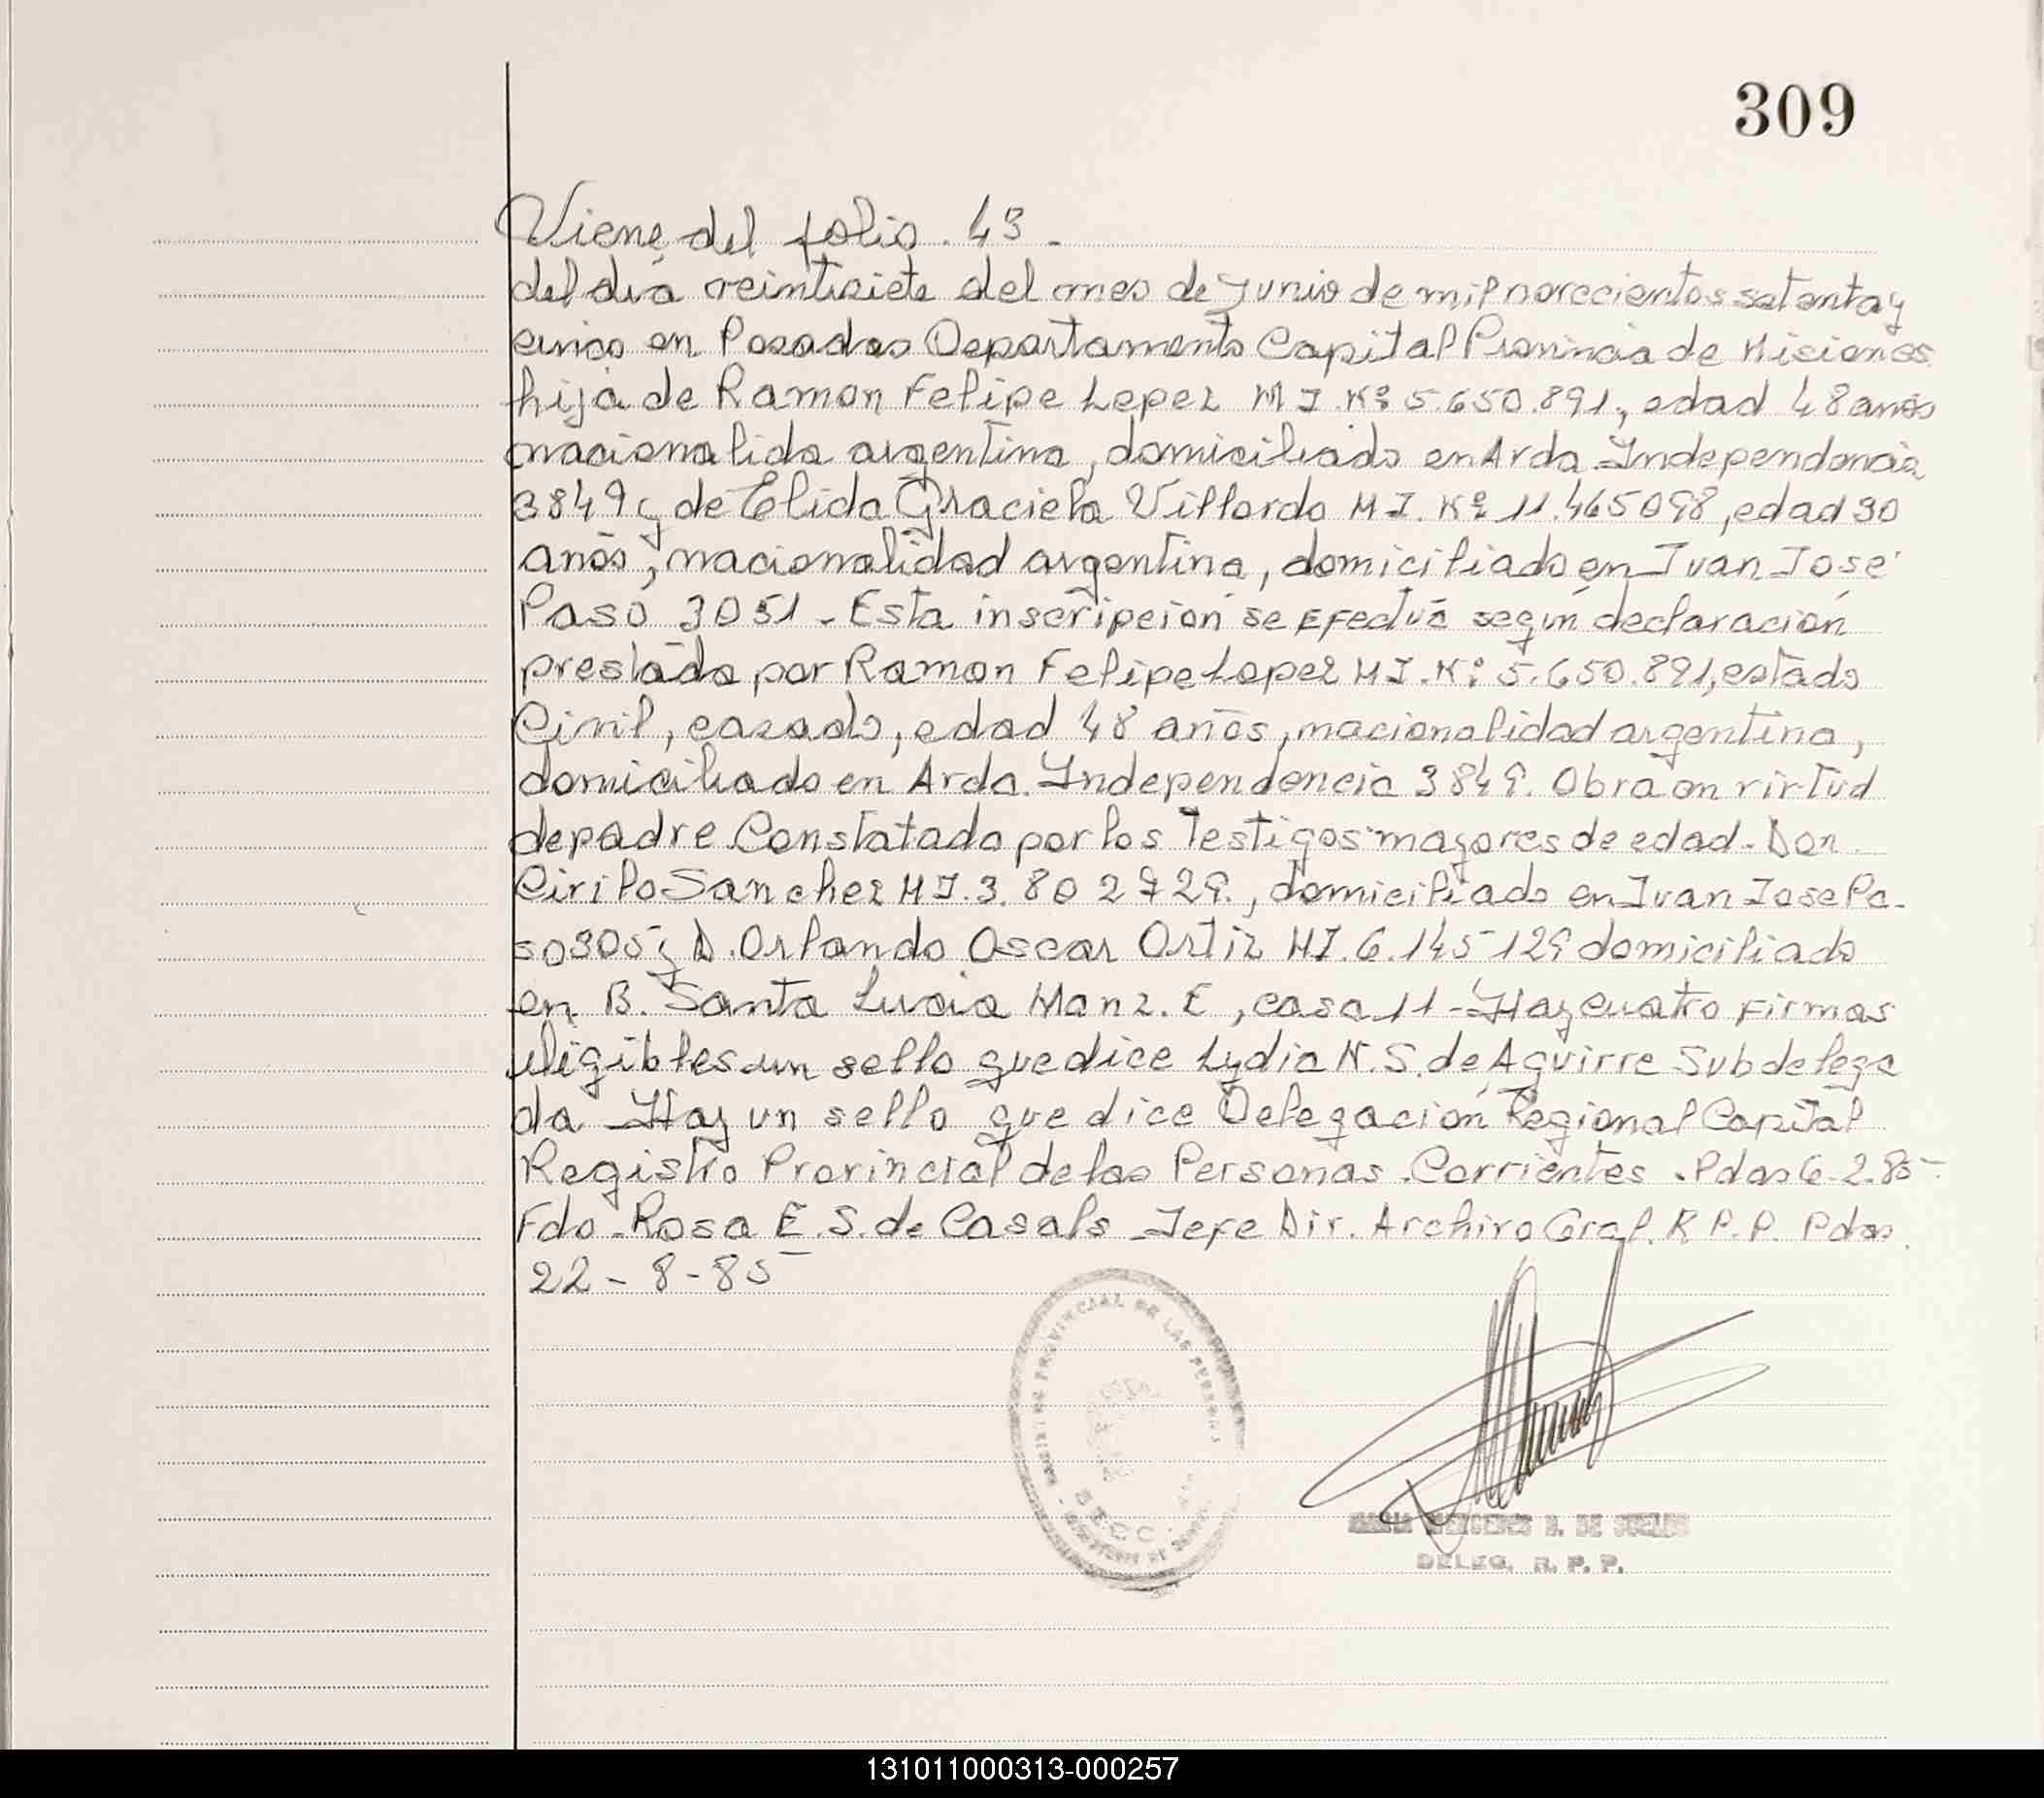 309
Viene del folio. 43.
del día veintisiete del mes de Junio de mil novecientos setenta y
cinco en Posadas Departamento Capital Provincia de Misiones
hija de Ramon Felipe Lopez M I. Nº 5.650.891, edad 48 anõs
nacionalida argentina, domiciliado en Avda Independencia
3849 y de Elida Graciela Villordo M I. Nº 11.465098, edad 30
anõs, nacionalidad argentina, domiciliado en Juan José
Paso 3051 - Esta inscripción se Efectuá según declaración
prestada por Ramon Felipe Lopez M I. Nº 5.650.891, estado
Civil, casado, edad 48 anõs, nacionalidad argentina,
domiciliado en Avda. Independencia 3849. Obra en virtud
de padre Constatado por los Testigos mayores de edad - Don
Cirilo Sanchez M I. 3. 80 2 729., domiciliado en Juan Jose Pa-
so 305 y D. Orlando Oscar Ortiz M I. 6. 145 129 domiciliado
en B. Santa Lucia Manz. E, casa 11 - Hay cuatro Firmas
iligibles un sello que dice Lydia N. S. de Aguirre Subdelega
da Hay un sello que dice Delegación Regional Capital
Registro Provincial de las Personas. Corrientes. Pdas 6-2.85-
Fdo. Rosa E. S. de Casals Jefe Dir. Archivo Gral. R P. P. Pdas.
22 - 8 - 85
PROVINCIAL DE LAS PERSONAS
SECC
MERCEDES DE
DELEG. R. P. P.
131011000313-000257